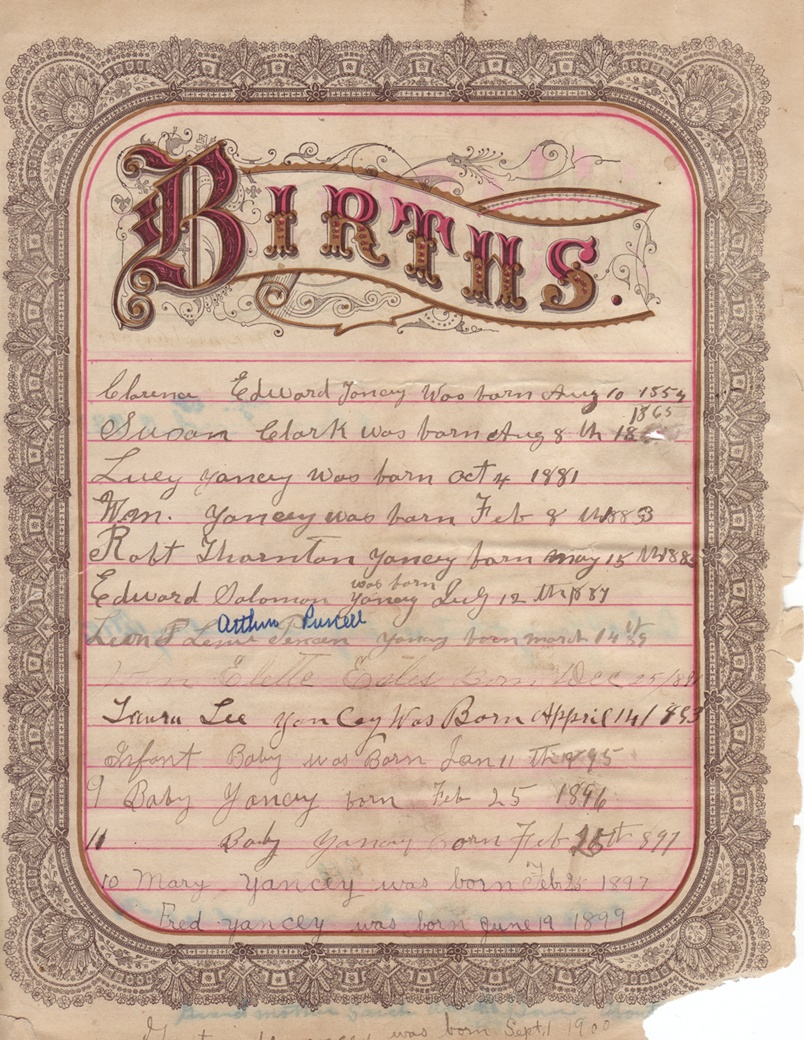 BIRTHS.
Clarence Edward Yancey Was born Aug 10 1854
1865
Susan Clark was born Aug 8 th 18
Lucy yancey was born oct 4 1881
Wm. yancey was born Feb 8 th 1883
Robt Thornton yancey born may 15 th 1885
was born
Edward Solomon yancey July 12 th 1887
Arthur Purcell
Leon yancey born march 14 89
Elette Estes Born Dec 25/
Laura Lee yancey Was Born April 14/ 893
Infant Baby was Born Jan 11 th 1895
9 Baby Yancey born Feb 25 1896
11 Baby Yancey born Feb 25th 897
10 Mary Yancey was born Feb 25 1897
Fred yancey was born June 19 1899
was born Sept 1 1900